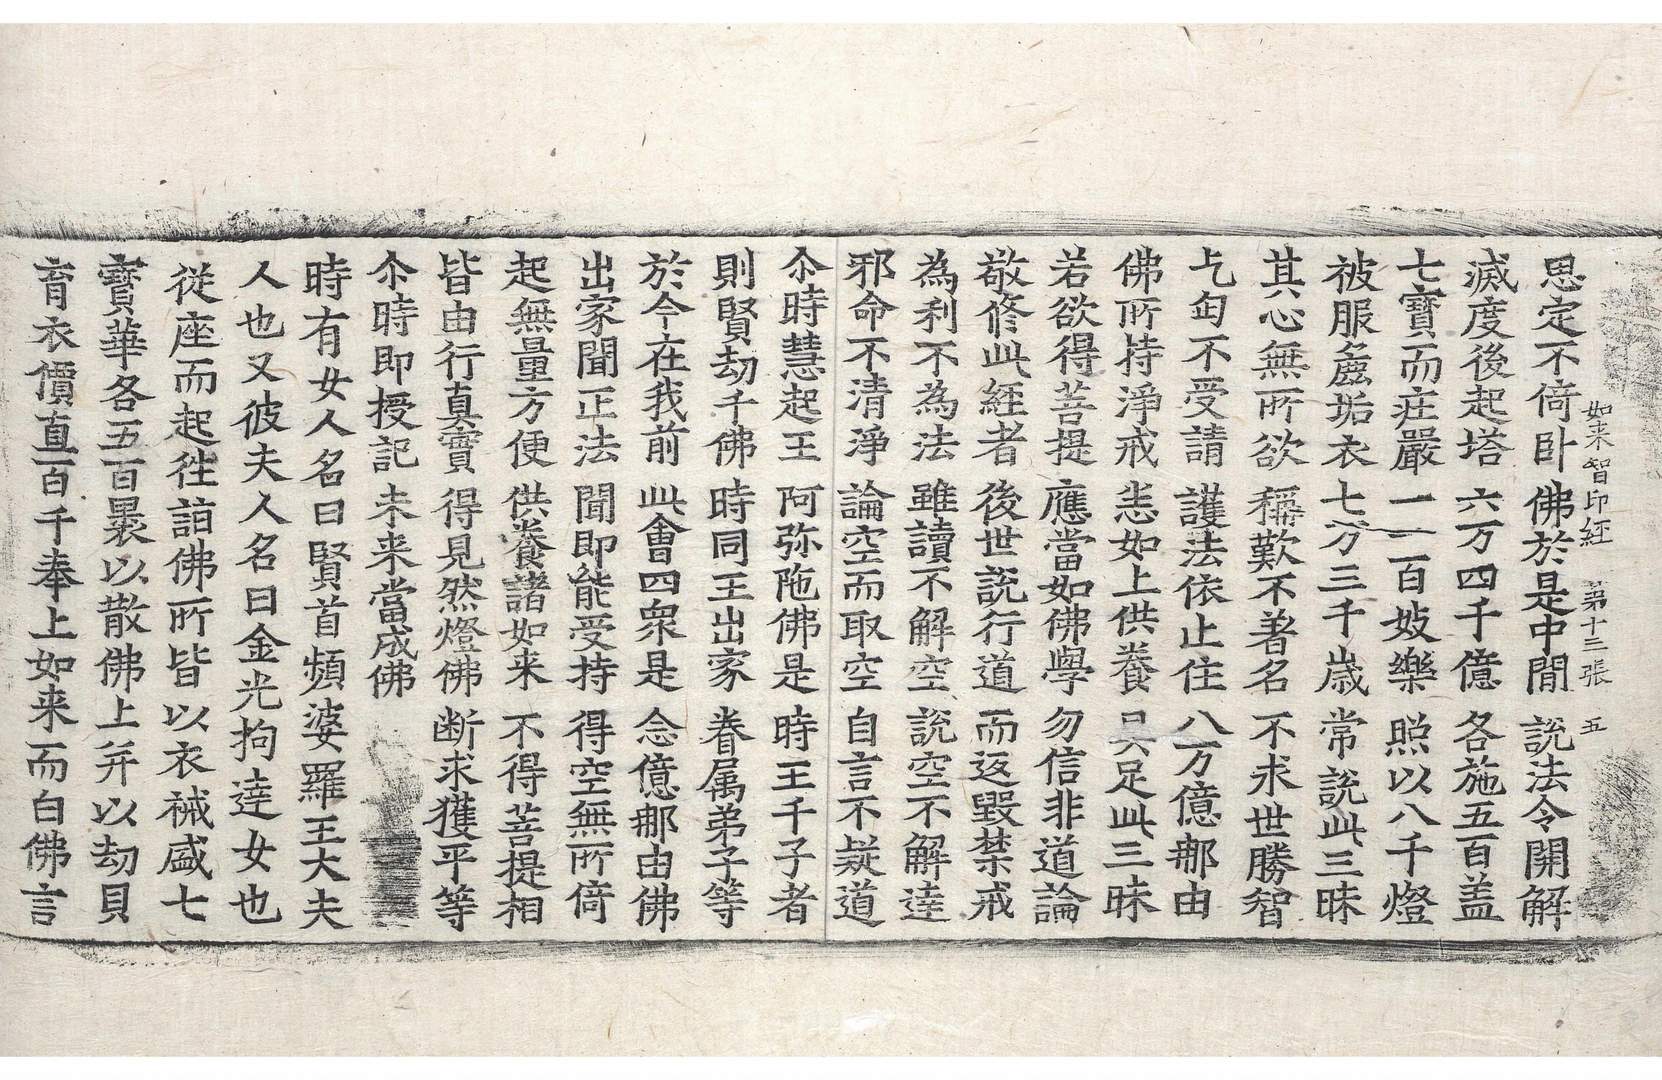 如来智印経 第十三張 五
思定不倚卧 佛於是中間 説法令開解
滅度後起塔 六万四千億 各施五百盖
七寶而庄嚴 一一百妓樂 照以八千燈
被服麁垢衣 七万三千歳 常説此三昧
其心無所欲 稱歎不著名 不求世勝智
乞匃不受請 護法依止住 八万億那由
佛所持淨戒 恙如上供養 具足此三昧
若欲得菩提 應當如佛學 勿信非道論
敬修此經者 後世説行道 而返毀禁戒
為利不為法 雖讀不解空 説空不解達
邪命不清淨 論空而取空 自言不疑道
尒時慧起王 阿弥陁佛是 時王千子者
則賢劫千佛 時同王出家 眷属弟子等
於今在我前 此會四衆是 念億那由佛
出家聞正法 聞即能受持 得空無所倚
起無量方便 供養諸如来 不得菩提相
皆由行真實 得見然燈佛 断求獲平等
尒時即授記 未来當成佛
時有女人名曰賢首頻婆羅王大夫
人也又彼夫人名曰金光拘達女也
從座而起徃詣佛所皆以衣裓盛七
寶華各五百褁以散佛上并以劫貝
育衣價直百千奉上如来而白佛言